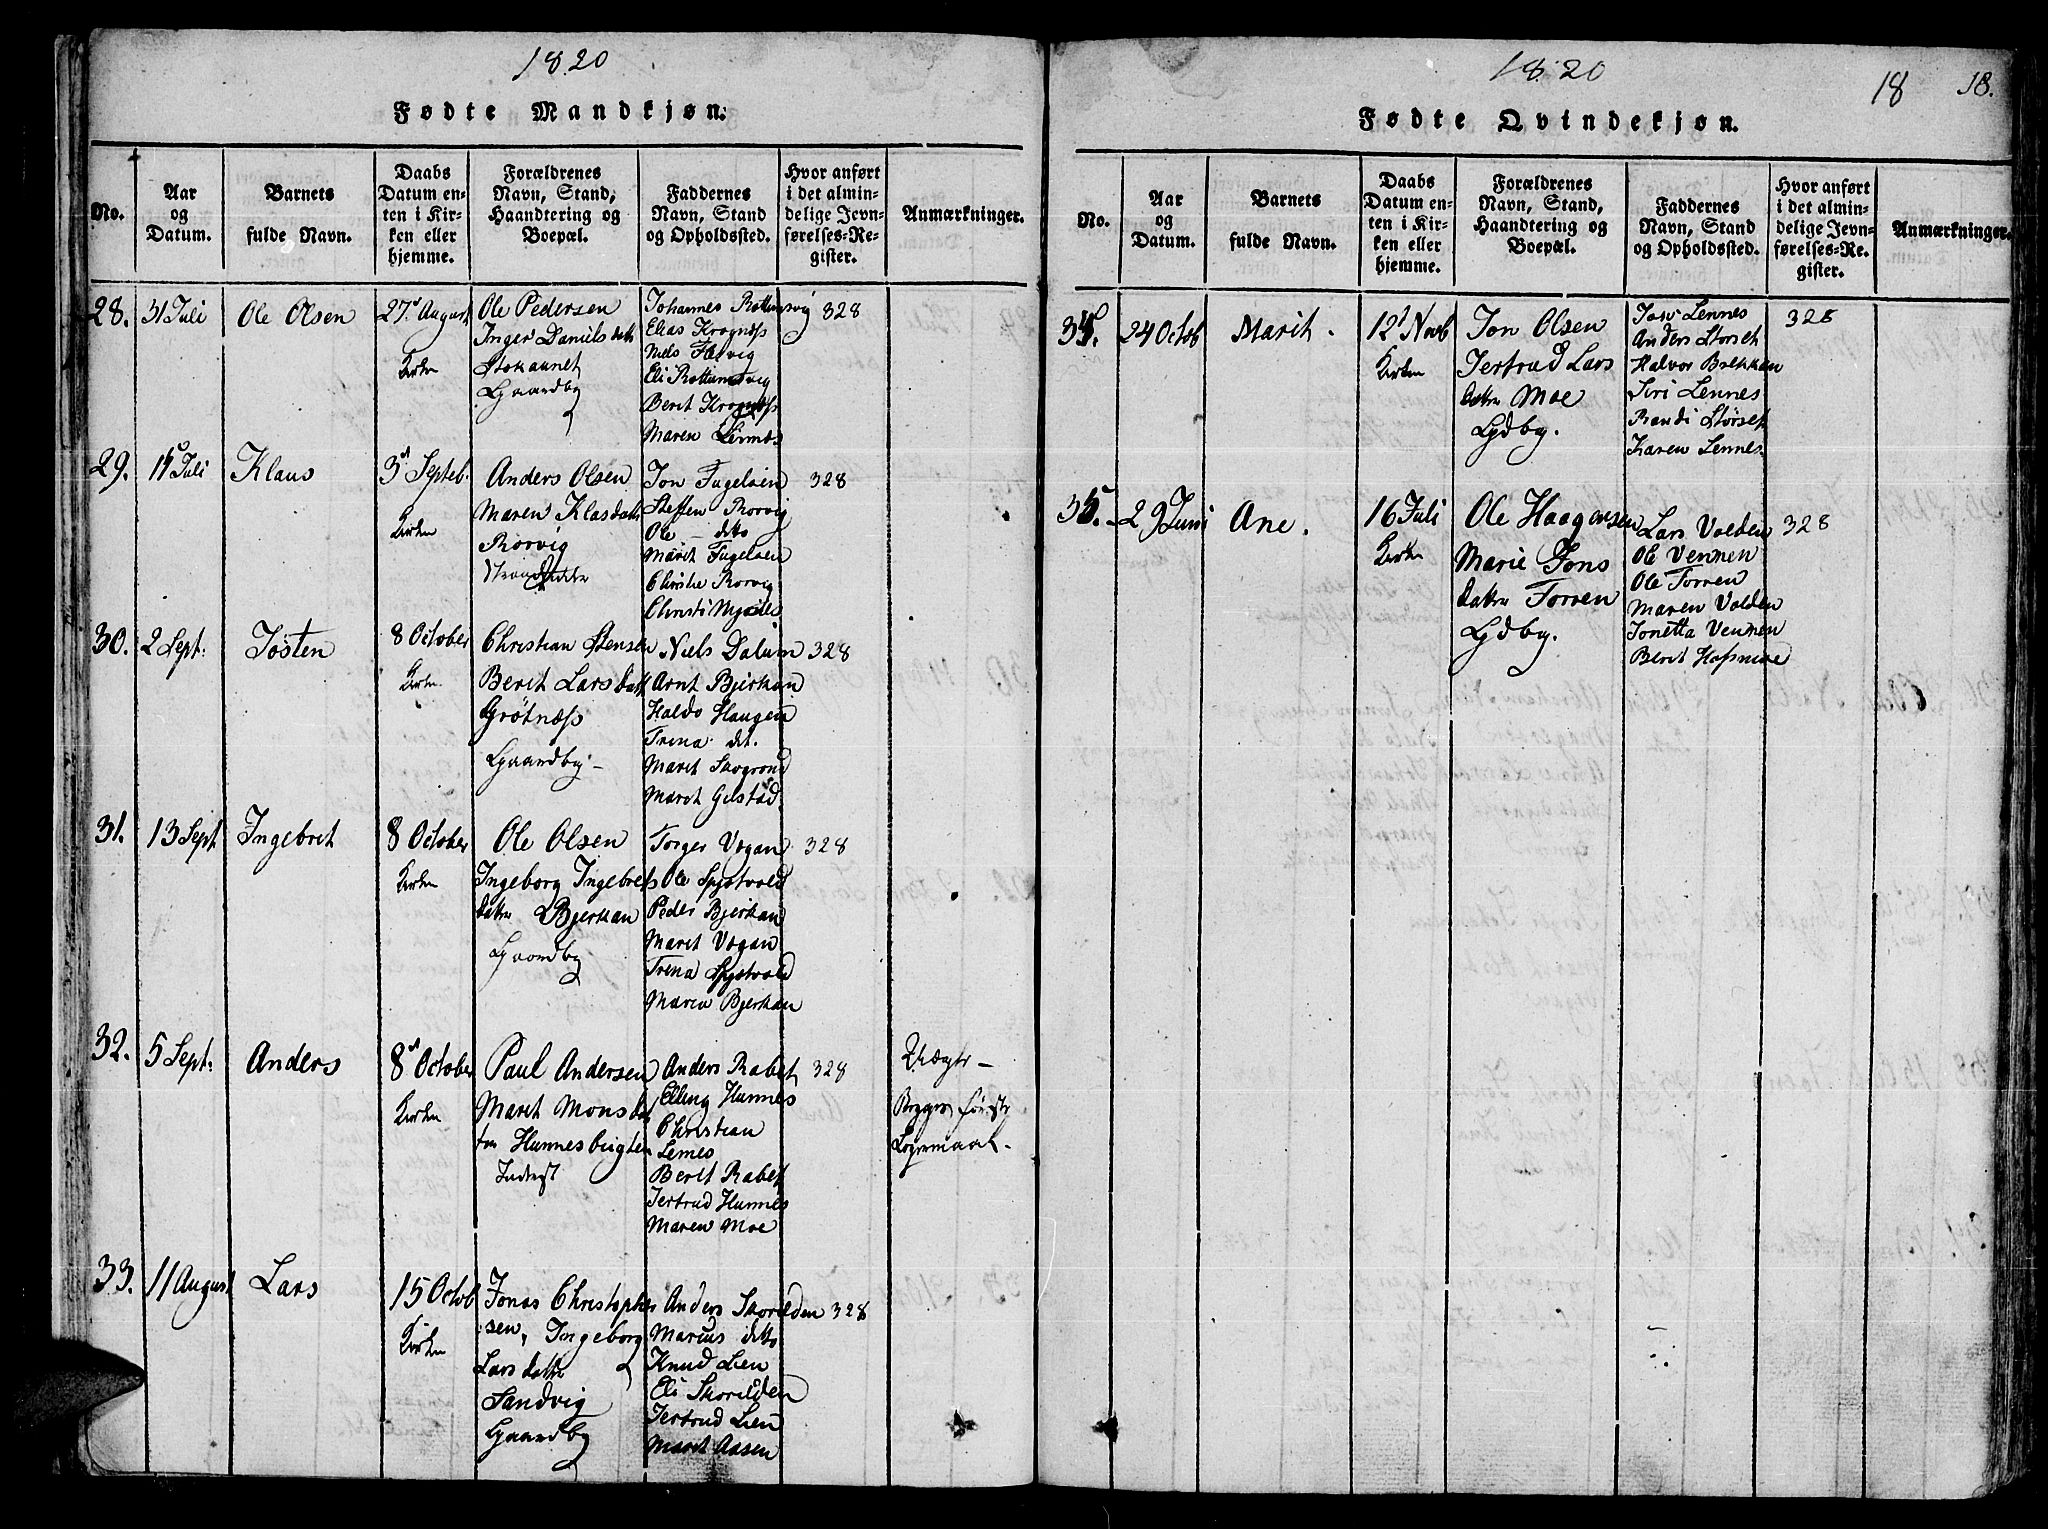 1820
Fødte Mandkjøn.
No.
Aar
og
Datum.
Barnets
fulde Navn.
Daabs
Datum en-
ten i Kir-
ken eller
hjemme.
Forældrenes
Navn, Stand,
Haandtering og
Boepæl.
Faddernes
Navn, Stand
og Opholdssted.
Hvor anført
i det almin-
delige Jevn-
førelses-Re-
gister.
Anmærkninger.
28.
31 Juli
Ole Olsen
27. August
Kirken
Ole Pedersen
Inger Daniels datt
Stokaunet
Gaardby
Johannes Rottemsvig
Elias Krognæss
Niels Flervig
Eli Rottemsvig
Berit Krognæss
Maren
328
29.
Juli
Klaus
3 Septeb.
Kirken
Anders Olsen
Maren Klasdatt
Rorvig
Jon Fugelsen
Steffen Rorvig
Ole - detto
Marit Fugelsen
Christie Rorvig
Christi
328
30.
2 Sept:
Josten
8 October
Kirken
Christian Stensen
Berit Lars datt
Grøtnæss
Gaardby -
Niels Dalum
Arnt Bjerkan
Haldo Haugen
Trena det.
Marit
Marit Gilstad
328
31.
13 Sept
Ingebret
8 October
Kirken
Ole Olsen
Ingeborg Ingebrets
datter Bjerkan
Gaardby
Torger Vogan
Ole Spjotvold
Peder Bjerkan
Marit Vogan
Trena Spjotvold
Maren Bjerkan
328
32.
5 Sept:
Anders
8 October
Kirken
Paul Andersen
Marit Monsda
ter Hunnesbugten
Inderst
Anders Rabet
Elling Hunnes
Christian
Lernes
Berit Rabet
Jertrud Hunnes
Maren Moe
328
Uægte -
Begges første
Legermaal.
33.
11 August
Lars
15 Octob
Kirken
Jonas Christopher
sen, Ingeborg
Lars datter
Sandvig
Gaardby
Anders Skorilden
Marcus detto
Knud Lien
Eli Skorilden
Jertrud Lien
Marit Aasen
328
1820
18
18.
Fødte Qvindekjøn.
No.
Aar
og
Datum.
Barnets
fulde Navn.
Daabs
Datum en-
ten i Kir-
ken eller
hjemme.
Forældrenes
Navn, Stand,
Haandtering og
Boepæl.
Faddernes
Navn, Stand
og Opholdssted.
Hvor anført
i det almin-
delige Jevn-
førelses-Re-
gister.
Anmærkninger.
34.
24 Octob
Marit.
12 Novb
Kirken
Jon Olsen
Jertrud Lars
datter Moe
Gdby.
Jon Lennes
Anders Storset
Halvor Brekkan
Siri Lennes
Randi Størset
Karen Lennes
328
35.
29 Juni
Ane.
16 Juli
Kirken
Ole Haagensen
Marie Jons
datter Torren
Gdby.
Lars Volden
Ole Vennen
Ole Torren
Maren Volden
Jonetta Vennen
Berit Hofsmoe
328